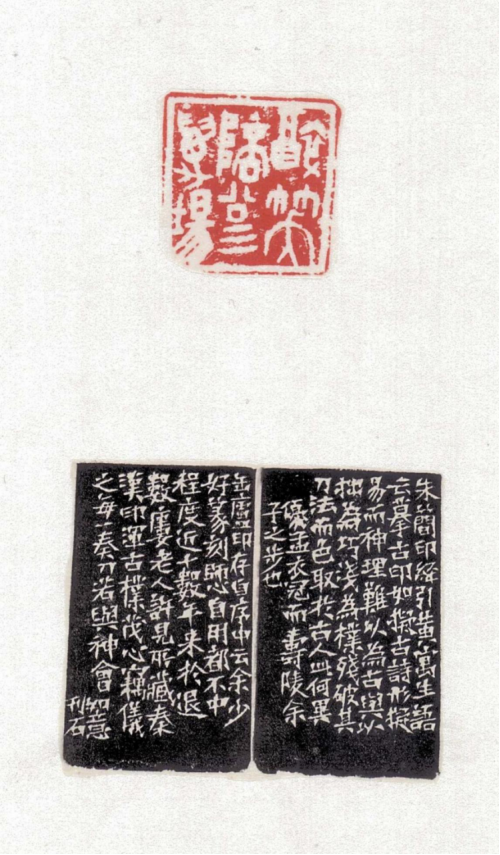 朱簡印經引黃寓生語
云摹古印如擬古詩形擬
易而神理難以為古與以
拙為巧淺為樸殘破其
刀法而已取於古人此何異
優孟衣冠而壽陵余
子之步也
缶廬印存自序中云余少
好篆刻師心自用都不中
程度近十數年來於退
數廔老人許見所藏秦
漢印渾古樸茂心竊儀
之每一奏刀若與神會如意
刊石